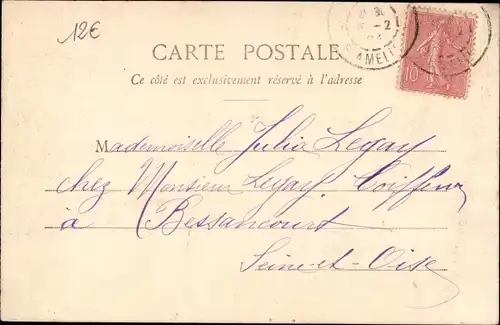 12€
CARTE POSTALE
Ce côté est exclusivement réservé à l'adresse
10
Mademoiselle Julia Legay
chez Monsieur Legay Coiffeur
à Bessancourt
Seine-et-Oise